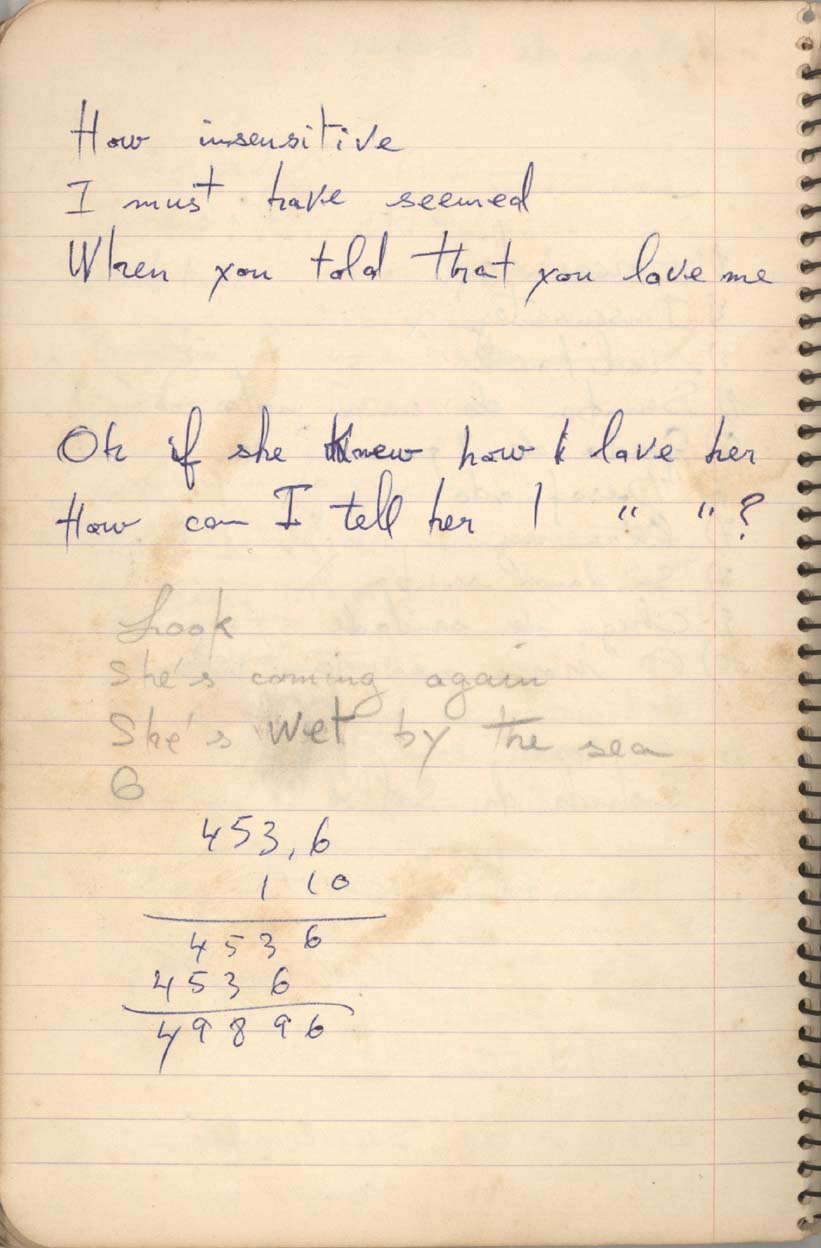 How insensitive
I must have seemed
When you told that you love me
Oh if she Knew how I love her
How can I tell her I " " ?
Look
She's coming again
She's wet by the sea
6
453,6
110
4536
4536
49896